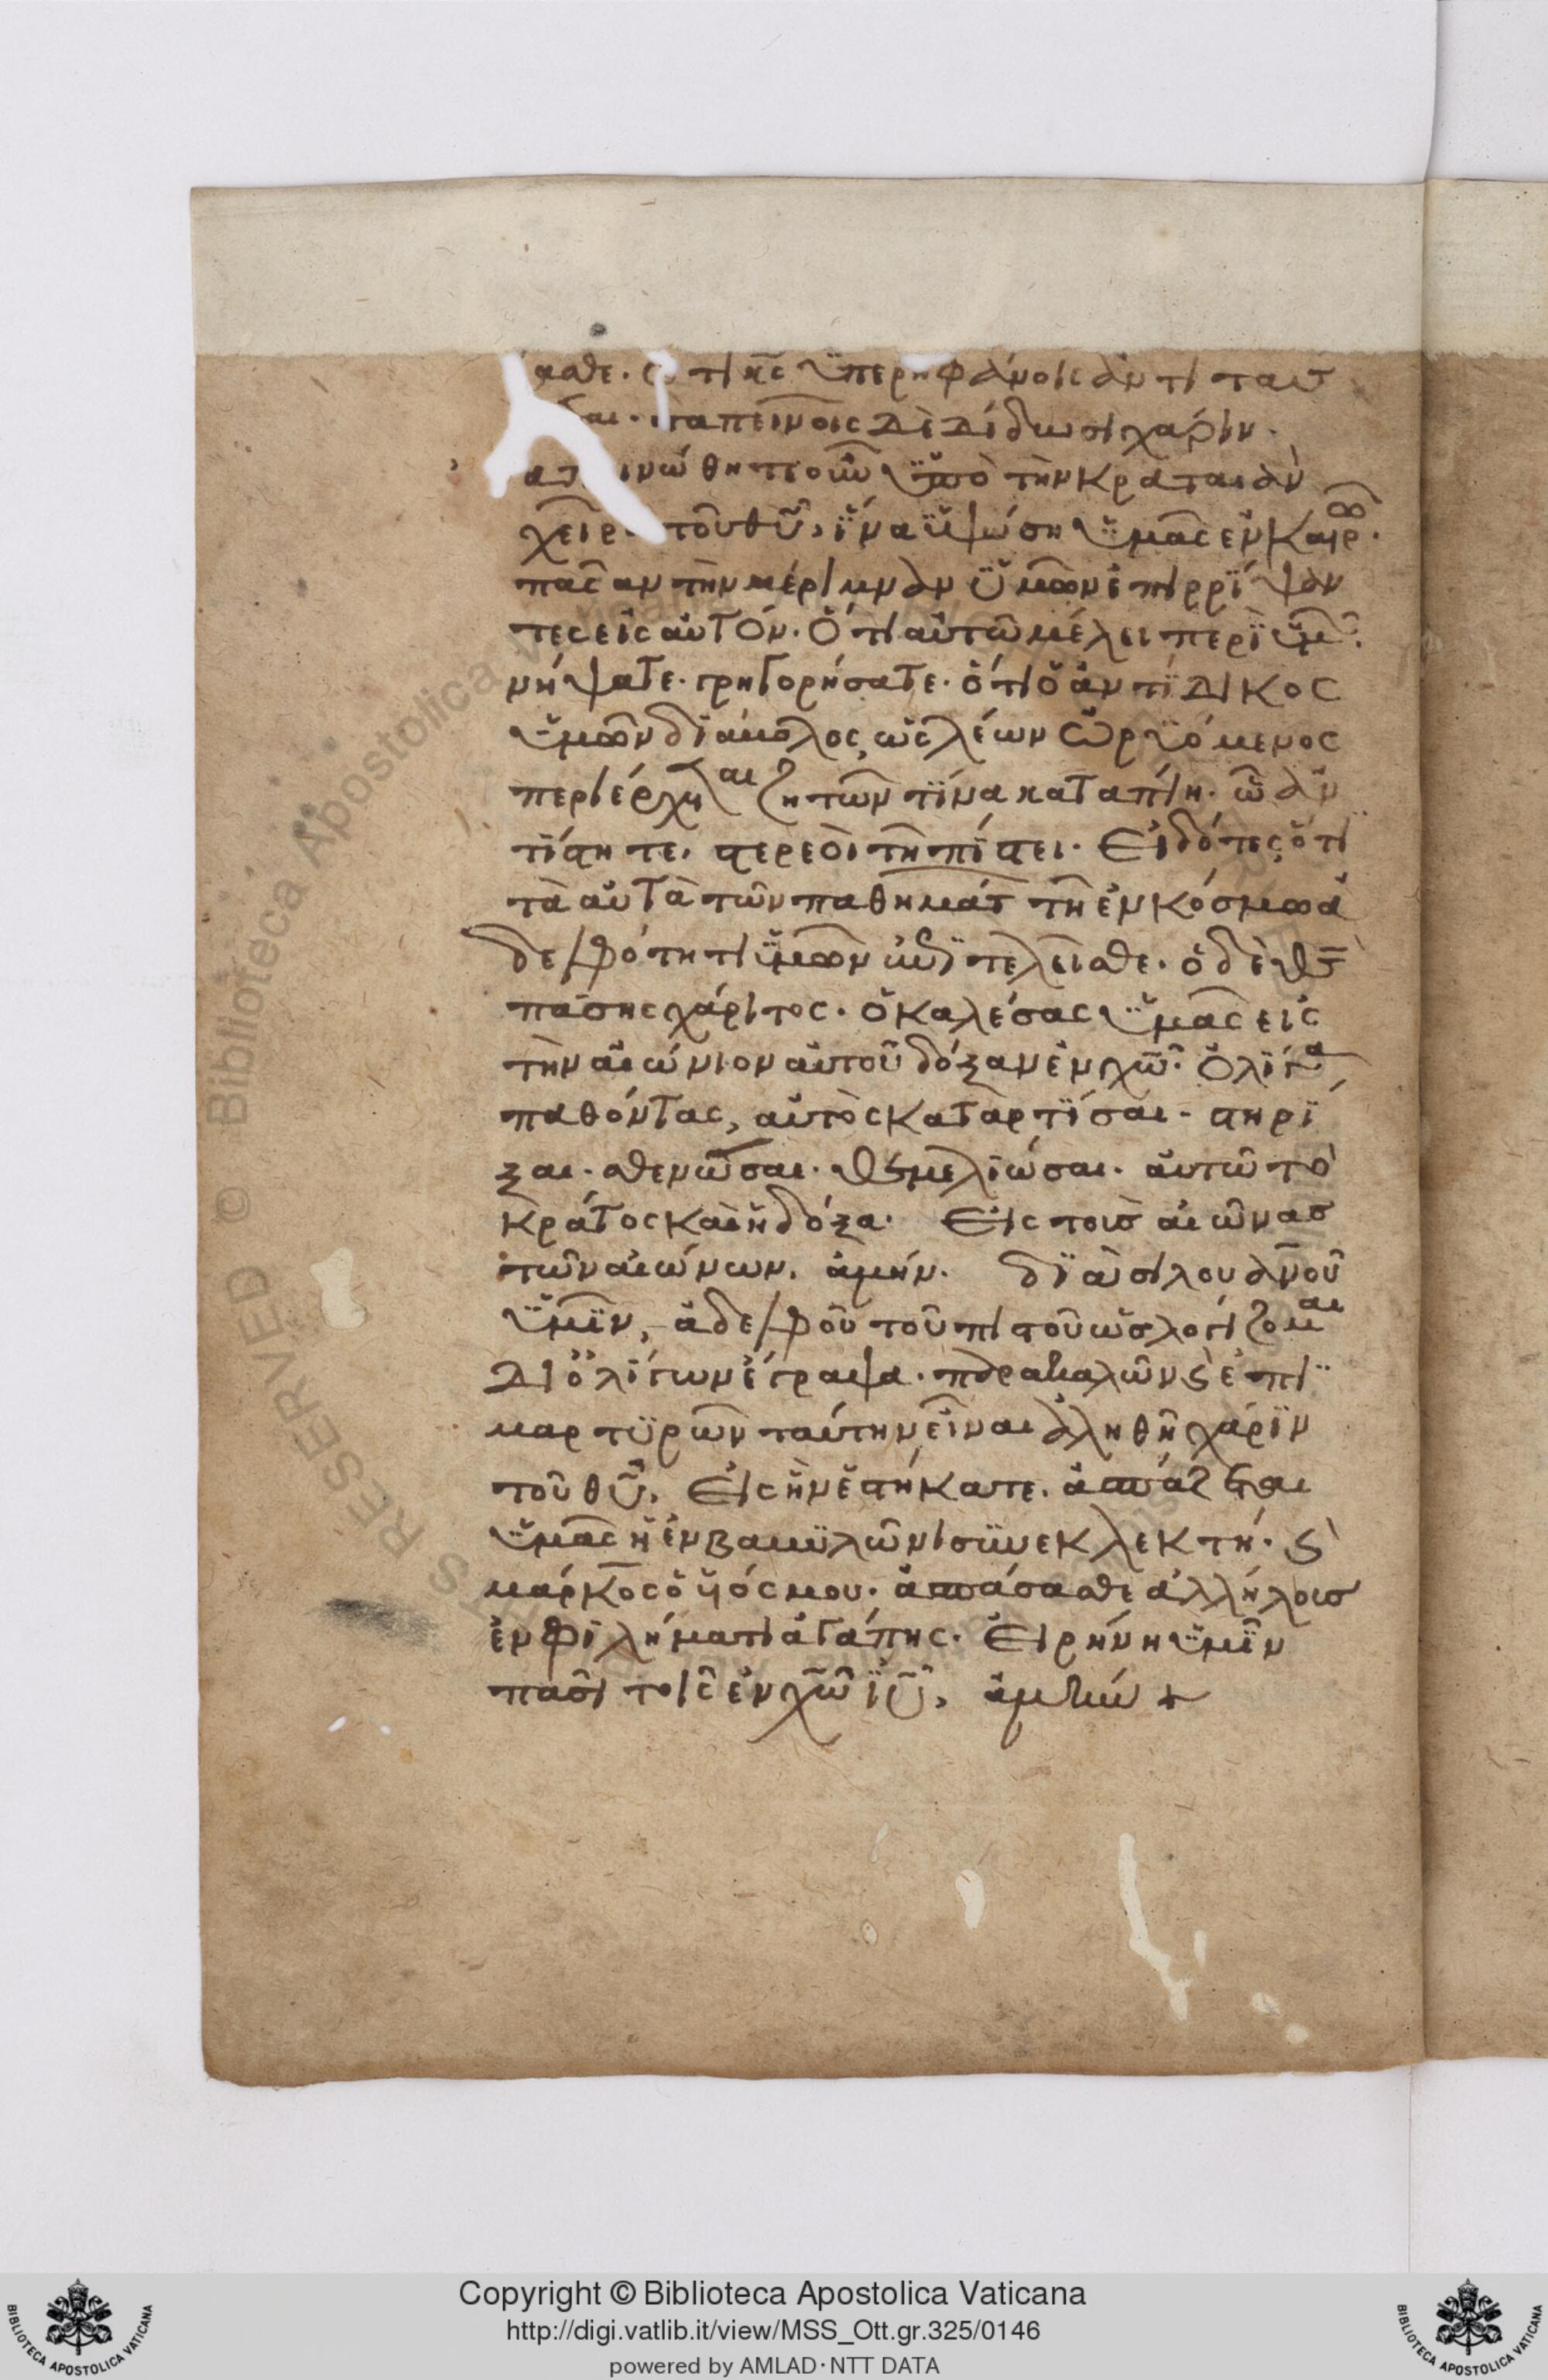 σασθε. ὅτι κ̅ς̅ ὑπερηφάνοις ἀντιτάσ
σεται. ταπεινοῖς δὲ δίδωσι χάριν.
ταπεινώθητε οὖν ὑπὸ τὴν κραταιὰν
χεῖρα τοῦ θ̅υ̅, ἵνα ὑψώση ὑμᾶς ἐν καιρῶ.
πᾶσαν τὴν μέριμναν ὑμῶν ἐπιρρίψαν
τες εἰς αὐτόν. ὅτι αὐτῶ μέλει περὶ ὑμ̅.
νήψατε. γρηγορήσατε. ὅτι ὁ ἀντίδικος
ὑμῶν διάβολος, ὡς λέων ὠρυόμενος
περιέρχεται ζητῶν τίνα καταπίη. ὦ ἀν
τίστητε, στερεοὶ τῆ πίστει. εἰδότες ὅτι
τὰ αὐτὰ τῶν παθημάτ τῆ ἐν κόσμω ἀ
δελφότητι ὑμῶν ἐπιτελεῖσθε. ὁ δὲ θ̅ς̅
πάσης χάριτος. ὁ καλέσας ὑμᾶς εἰς
τὴν αἰώνιον αὐτοῦ δόξαν ἐν χ̅ω̅. ὀλίγα
παθόντας, αὐτὸς καταρτίσαι. στηρί
ξαι. σθενῶσαι. θεμελιώσαι. αὐτῶ τὸ
κράτος καὶ ἡ δόξα. εἰς τοὺς αἰῶνας
τῶν αἰώνων. ἀμήν. διὰ σιλουανοῦ
ὑμῖν, ἀδελφοῦ τοῦ πιστοῦ ὡς λογίζομαι
δι ὀλίγων ἔγραψα. παρακαλῶν ϛ ἐπι
μαρτυρῶν ταύτην εἶναι ἀληθῆ χάριν
τοῦ θ̅υ̅, εἰς ἣν ἑστήκατε. ἀσπάζεται
ὑμᾶς ἡ ἐν βαβυλῶνι συνεκλεκτή. ϛ
μάρκος ὁ υἱός μου. ἀσπάσασθε ἀλλήλους
ἐν φιλήματι ἀγάπης. εἰρήνη ὑμῖν
πᾶσι τοῖς ἐν χ̅ω̅ ι̅υ̅, ἀμήν +
RESERVED © Biblioteca Apostolica Vaticana
Copyright © Biblioteca Apostolica Vaticana
http://digi.vatlib.it/view/MSS_Ott.gr.325/0146
powered by AMLAD·NTT DATA
BIBLIOTECA APOSTOLICA VATICANA
BIBLIOTECA APOSTOLICA VATICANA